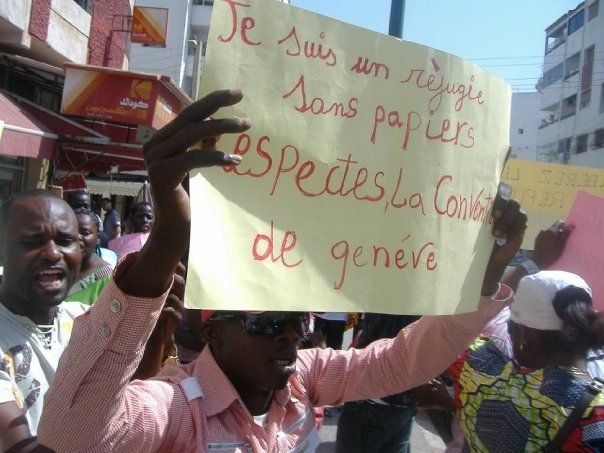 Je suis un réfugie
sans papiers
Respectes, La Convention
de genéve
كوداك